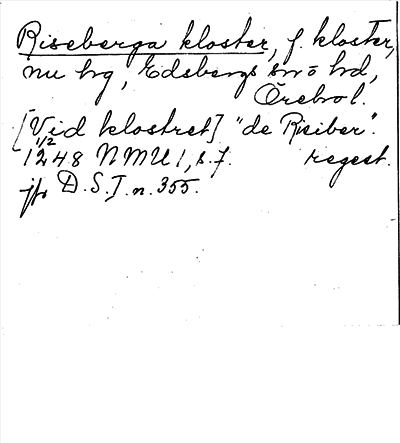 Riseberga kloster, f. kloster,
nu hg, Edsbergs sn o hd,
Örebro l.
[Vid klostret] "de Risiber".
1/2
1248 NMU 1, s. 7. regest.
jfr D.S. I n. 355.